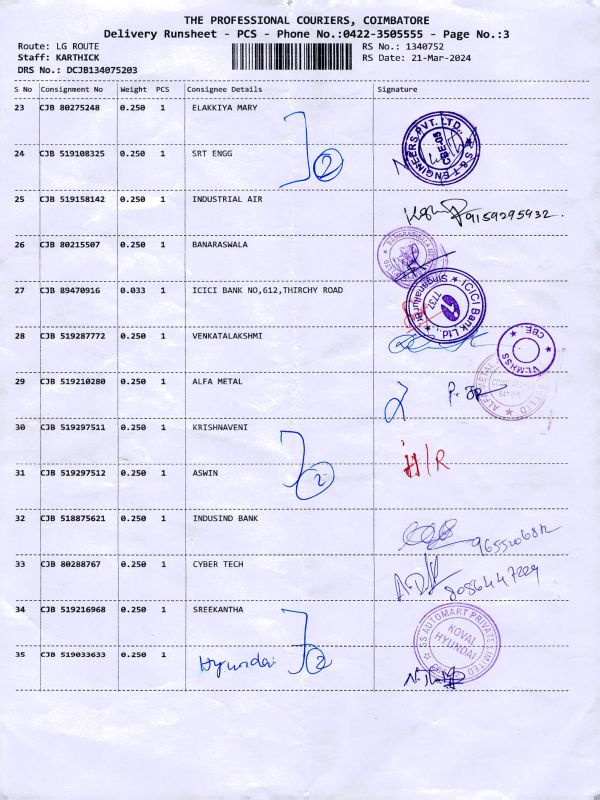 THE PROFESSIONAL COURIERS, COIMBATORE
Delivery Runsheet - PCS - Phone No.:0422-3505555 - Page No.:3
Route: LG ROUTE RS No.: 1340752
Staff: KARTHICK RS Date: 21-Mar-2024
DRS No.: DCJB134075203
S No Consignment No Weight PCS Consignee Details Signature
23 CJB 80275248 0.250 1 ELAKKIYA MARY
24 CJB 519108325 0.250 1 SRT ENGG
2
S & T ENGINEERS PVT. LTD.
CBE-09
25 CJB 519158142 0.250 1 INDUSTRIAL AIR
9159295932.
26 CJB 80215507 0.250 1 BANARASWALA
27 CJB 89470916 0.033 1 ICICI BANK NO,612,THIRCHY ROAD
ICICI Bank Ltd.,
7737
28 CJB 519287772 0.250 1 VENKATALAKSHMI
VLMHSS
CBE
29 CJB 519210280 0.250 1 ALFA METAL
30 CJB 519297511 0.250 1 KRISHNAVENI
H/R
31 CJB 519297512 0.250 1 ASWIN
2
32 CJB 518875621 0.250 1 INDUSIND BANK
33 CJB 80288767 0.250 1 CYBER TECH
34 CJB 519216968 0.250 1 SREEKANTHA
SS AUTOMART PRIVATE LIMITED
KOVAL
HYUNDAI
35 CJB 519033633 0.250 1 Hyundai
2